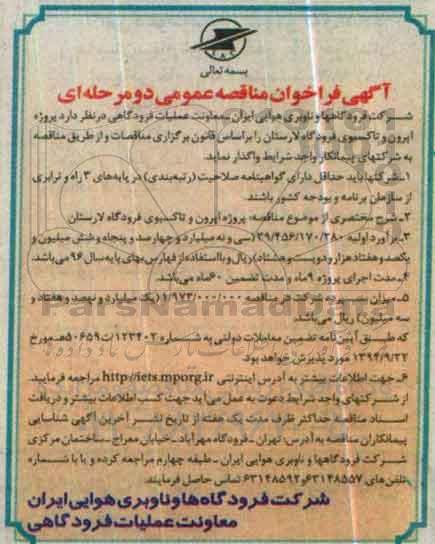 بسمه تعالی
آگهی فراخوان مناقصه عمومی دو مرحله ای
شرکت فرودگاهها و ناوبری هوایی ایران - معاونت عملیات فرودگاهی در نظر دارد پروژه
اپرون و تاکسیوی فرودگاه لارستان را بر اساس قانون برگزاری مناقصات و از طریق مناقصه
به شرکتهای پیمانکار واجد شرایط واگذار نماید.
۱- شرکتها باید حداقل دارای گواهینامه صلاحیت (رتبه بندی) در پایه های ۳ راه و ترابری
از سازمان برنامه و بودجه کشور باشند.
۲- شرح مختصری از موضوع مناقصه: پروژه اپرون و تاکسیوی فرودگاه لارستان
۳- برآورد اولیه ۳۹/۴۵۶/۱۷۰/۲۸۰ (سی و نه میلیارد و چهارصد و پنجاه و شش میلیون و
یکصد و هفتاد هزار و دویست و هشتاد) ریال و با استفاده از فهارس بهای پایه سال ۹۶ می باشد.
۴- مدت اجرای پروژه ۹ ماه و مدت تضمین ۶۰ ماه می باشد.
۵- میزان سپرده شرکت در مناقصه ۱/۹۷۳/۰۰۰/۰۰۰ (یک میلیارد و نهصد و هفتاد و
سه میلیون) ریال می باشد.
که طبق آیین نامه تضمین معاملات دولتی به شماره ۱۲۳۴۰۲/ت۵۰۶۵۹ه مورخ
۱۳۹۴/۹/۲۲ مورد پذیرش خواهد بود.
۶- جهت اطلاعات بیشتر به آدرس اینترنتی http://iets.mporg.ir مراجعه فرمایید.
از شرکتهای واجد شرایط دعوت به عمل می آید جهت کسب اطلاعات بیشتر و دریافت
اسناد مناقصه حداکثر ظرف مدت یک هفته از تاریخ نشر آخرین آگهی شناسایی
پیمانکاران مناقصه به آدرس: تهران - فرودگاه مهرآباد - خیابان معراج - ساختمان مرکزی
شرکت فرودگاهها و ناوبری هوایی ایران - طبقه چهارم مراجعه کرده و یا با شماره
تلفن های ۶۳۱۴۸۵۵۷ و ۶۳۱۴۸۵۹۲ تماس حاصل فرمایند.
شرکت فرودگاه ها و ناوبری هوایی ایران
معاونت عملیات فرودگاهی
ParsNamadData